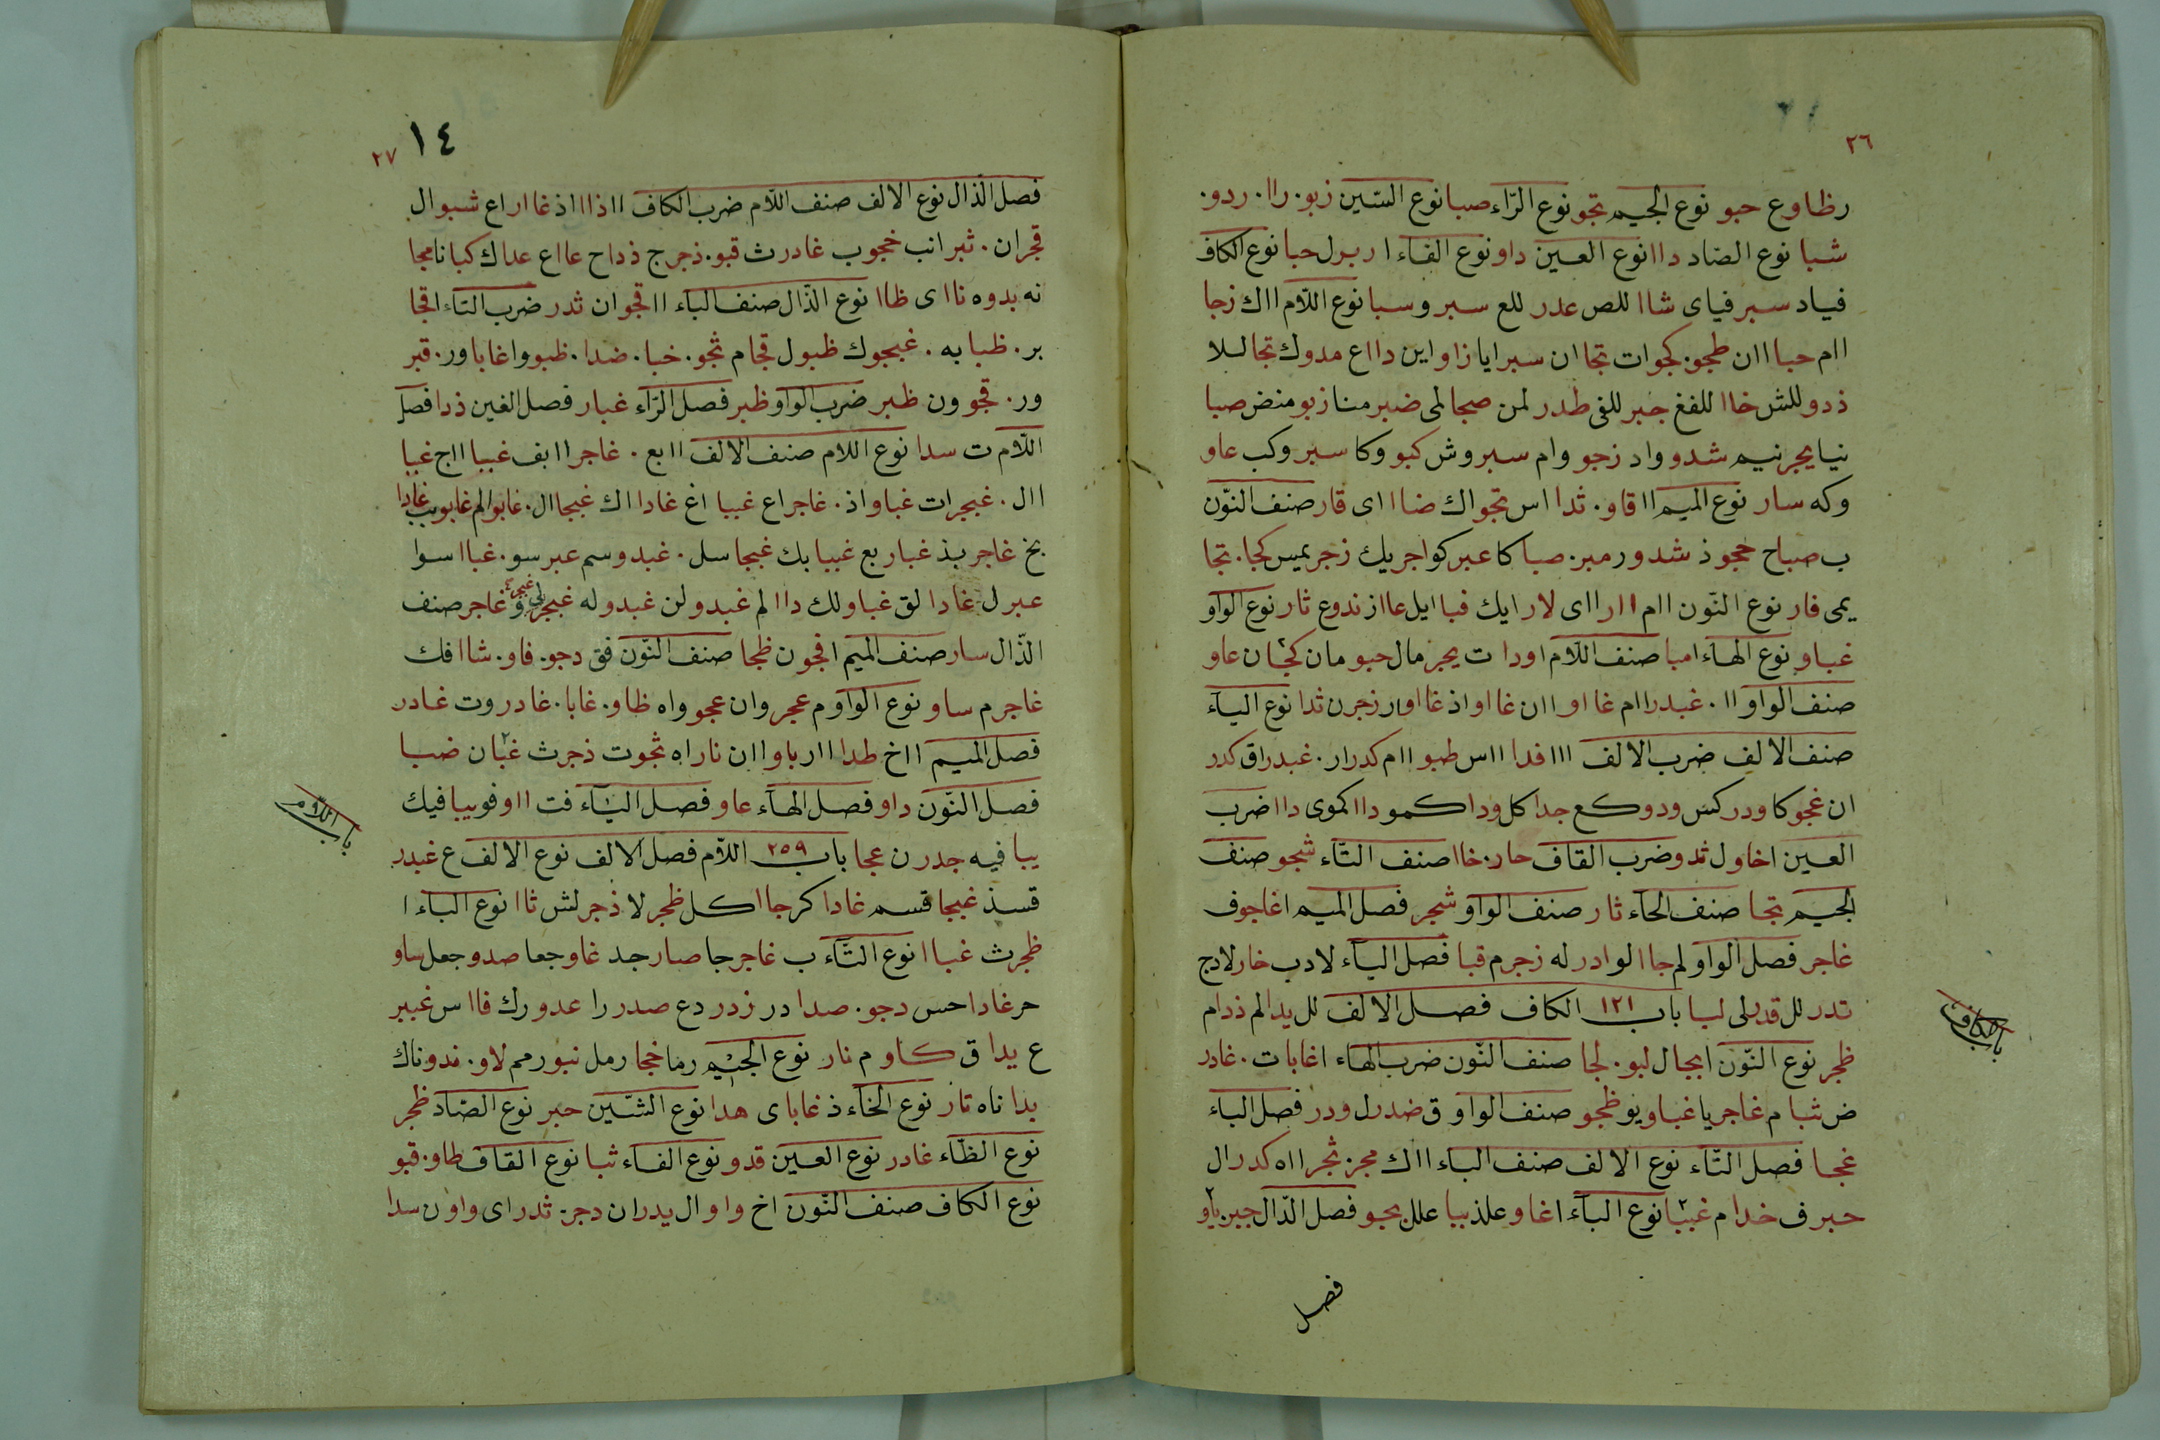 ٢٦
رظاوع حبو نوع الجيم تجو نوع الرّاء صبا نوع السّين زبو. راا. ردو.
شبا نوع الصّاد داا نوع العين داو نوع الفاء ا ربرل حبا نوع الكاف
فياد سبر فياى شاا للص عدر للع سبر وسبا نوع اللّام ااك زجا
اام حبا اان طجو. كجوات تجا ان سبر ايا زاو اين دااع مدوك تجا لبلا
ذدو للش خاا للفغ جبر للفى طدر لمن صجا لمى ضبر منا زبو منض صبا
نيا يجر نيم شدو واد زجو وام سبر وش كبو وكا سبر وكب عاو
وكه سار نوع الميم اا قاو. ثدا اس تجو اك ضاا اى قار صنف النّون
ب صباح حجو ذ شدور مبر. صبا كا عبر كو اجر يك زجر يمس كجا. تجا
يمى فار نوع النّون اام اار ااى لار ايك فبا ايل عااز ندوع ثار نوع الواو
غباو نوع الهاء امبا صنف اللّام اودا ت يجر مال حبو مان كجيان عاو
صنف الواو اا. غبدر اام غااو اان غااو اذ غااور زجر ن ثدا نوع الياء
صنف الالف ضرب الالف ااا فدا ااس طبو اام كدرار. غبدر اق كدر
ان غجو كا ودر كس ودو كع جدا كل ودا كمو داا كموى داا ضرب
العين اخاول ثدو ضرب القاف حار. خاا صنف التّاء شجو صنف
الجيم تجا صنف الحاء ثار صنف الواو شجر فصل الميم اغاجوف
غاجر فصل الواو لم جاا لوادر له زجرم قبا فصل الياء لادب خار لادج
تدر لل قدر لى لبا باب ١٢١ الكاف فصل الالف لل يدا لم ذدام
ظجر نوع النّون ابجا ل لبو. لجا صنف النّون ضرب الهاء اغابا ت. غادر
ض شبا م غاجر يا غباو يو ظجو صنف الواو ق ضدرل ودر فصل الباء
غجا فصل التّاء نوع الالف صنف الباء ااك مجر. ثجر ااه كدر ال
حبرف خدا م غبيا نوع الباء اغاو علذ بيا علل بجو فصل الذّال جبر. ياو
فصل
باب الكاف
٢٧
١٤
فصل الذّال نوع الالف صنف اللّام ضرب الكاف ااذا ااذ غاار اع شبو ال
قجر ان. ثبر انب خجو ب غادر ث قبو. ذجر ج ذداح عااع عداك كبا نا مجا
نه بدوه ناا ى ظاا نوع الذّال صنف الباء اا قجو ان ثدر ضرب التاء اقجا
بر. ظبا به. غبجوك ظبول قجام ثجو. خبا. ضدا. ظبو واغاباور. قبر
ور. قجو ون ظبر ضرب الواو ظبر فصل الرّاء غبار فصل الغين ذدا فصل
اللّام ت سدا نوع اللام صنف الالف اابع. غاجر اابف غبيا ااج غبيا
اال. غبجر ات غباو اذ. غاجر اع غبيا اغ غادا اك غبجا ال. غابو الم غابو بب غادا
بخ غاجر بذ غبار بع غبيا بك غبجا سل. غبدو سم عبر سو. غباا سوا
عبرل غادا لق غباو لك داا لم غبدو لن غبدو له غبجر لى و غاجر صنف
الذّال سار صنف الميم افجو ن ظجا صنف النّون فق دجو. فاو. شاا فك
غاجر م ساو نوع الواو م عجر وان عجو واه ظاو. غابا. غادر وت غادر
فصل الميم ااخ طدا اار باو اان نار اه ثجوت ذجر ث غبان ضبا
فصل النّون داو فصل الهاء عاو فصل الياء فت ااو فو يبا فيك
يبا فيه جدر ن عجا باب ٢٥٩ اللّام فصل الالف نوع الالف ع غبدر
قسذ غبجا قسم غادا كر جاا كل ظجر لا ذجر لش ثاا نوع الباء ا
ظجر ث غباا نوع التّاء ب غاجر جا صار جد غاو جعا صدو جعل ساو
حر غادا حس دجو. صدا در زدر دع صدر را عدو رك فاا س غببر
ع يدا ق كاو م نار نوع الجيم رما خجا رمل نبو رمم لاو. ندو ناك
بدا ناه تار نوع الخاء ذ غابا ى هدا نوع الشّين حبر نوع الصّاد ظجر
نوع الظّاء غادر نوع العين قدو نوع الفاء ثبا نوع القاف طاو. قبو
نوع الكاف صنف النّون اخ واو ال يدر ان دجر. ثدر اى واو ن سدا
باب اللّام